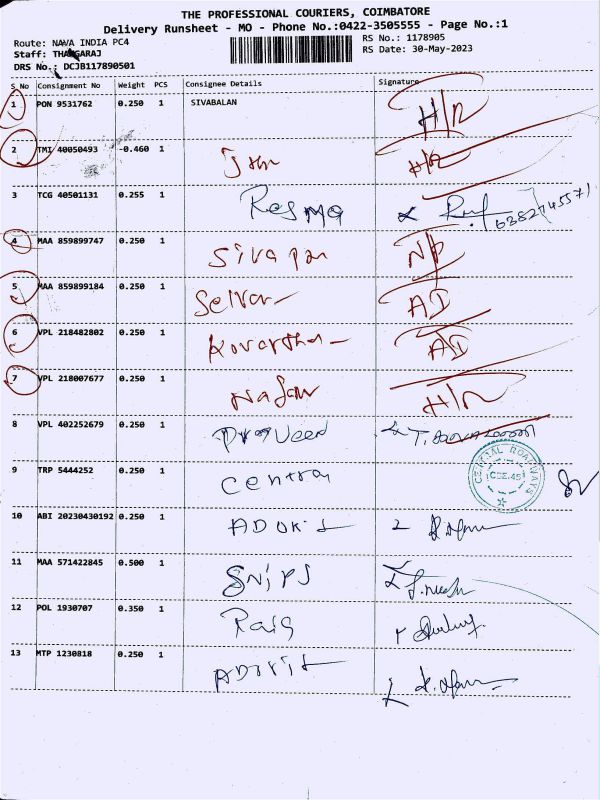 THE PROFESSIONAL COURIERS, COIMBATORE
Delivery Runsheet - MO - Phone No.:0422-3505555 - Page No.:1
Route: NAVA INDIA PC4 RS No.: 1178905
Staff: THANGARAJ RS Date: 30-May-2023
DRS No.: DCJB117890501
S No Consignment No Weight PCS Consignee Details Signature
1 PON 9531762 0.250 1 SIVABALAN H/R
2 TMI 40050493 -0.460 1 John H/R
3 TCG 40501131 0.255 1 Resma
4 MAA 859899747 0.250 1
5 MAA 859899184 0.250 1 Selvan AD
6 VPL 218482802 0.250 1 AD
7 VPL 218007677 0.250 1 H/R
8 VPL 402252679 0.250 1 Praveen
CENTRAL ROADWAYS
CBE.45
9 TRP 5444252 0.250 1 Central
10 ABI 20230430192 0.250 1
11 MAA 571422845 0.500 1 SNIPS
12 POL 1930707 0.350 1
13 MTP 1230818 0.250 1